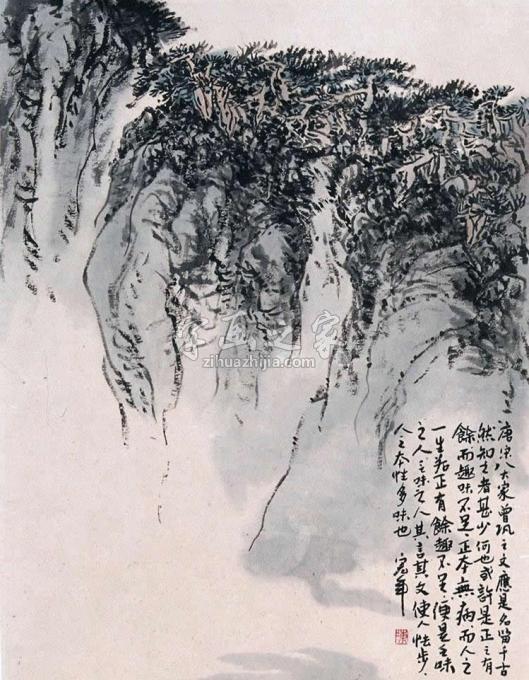 唐宋八大家曾巩之文應是名留千古
然知之者甚少何也或許是正之有
餘而趣味不足正本無病而人之
一生若正有餘趣不足便是乏味
之人乏味之人其言其文使人怯步
人之本性多味也
字画之家
zihuazhijia.com